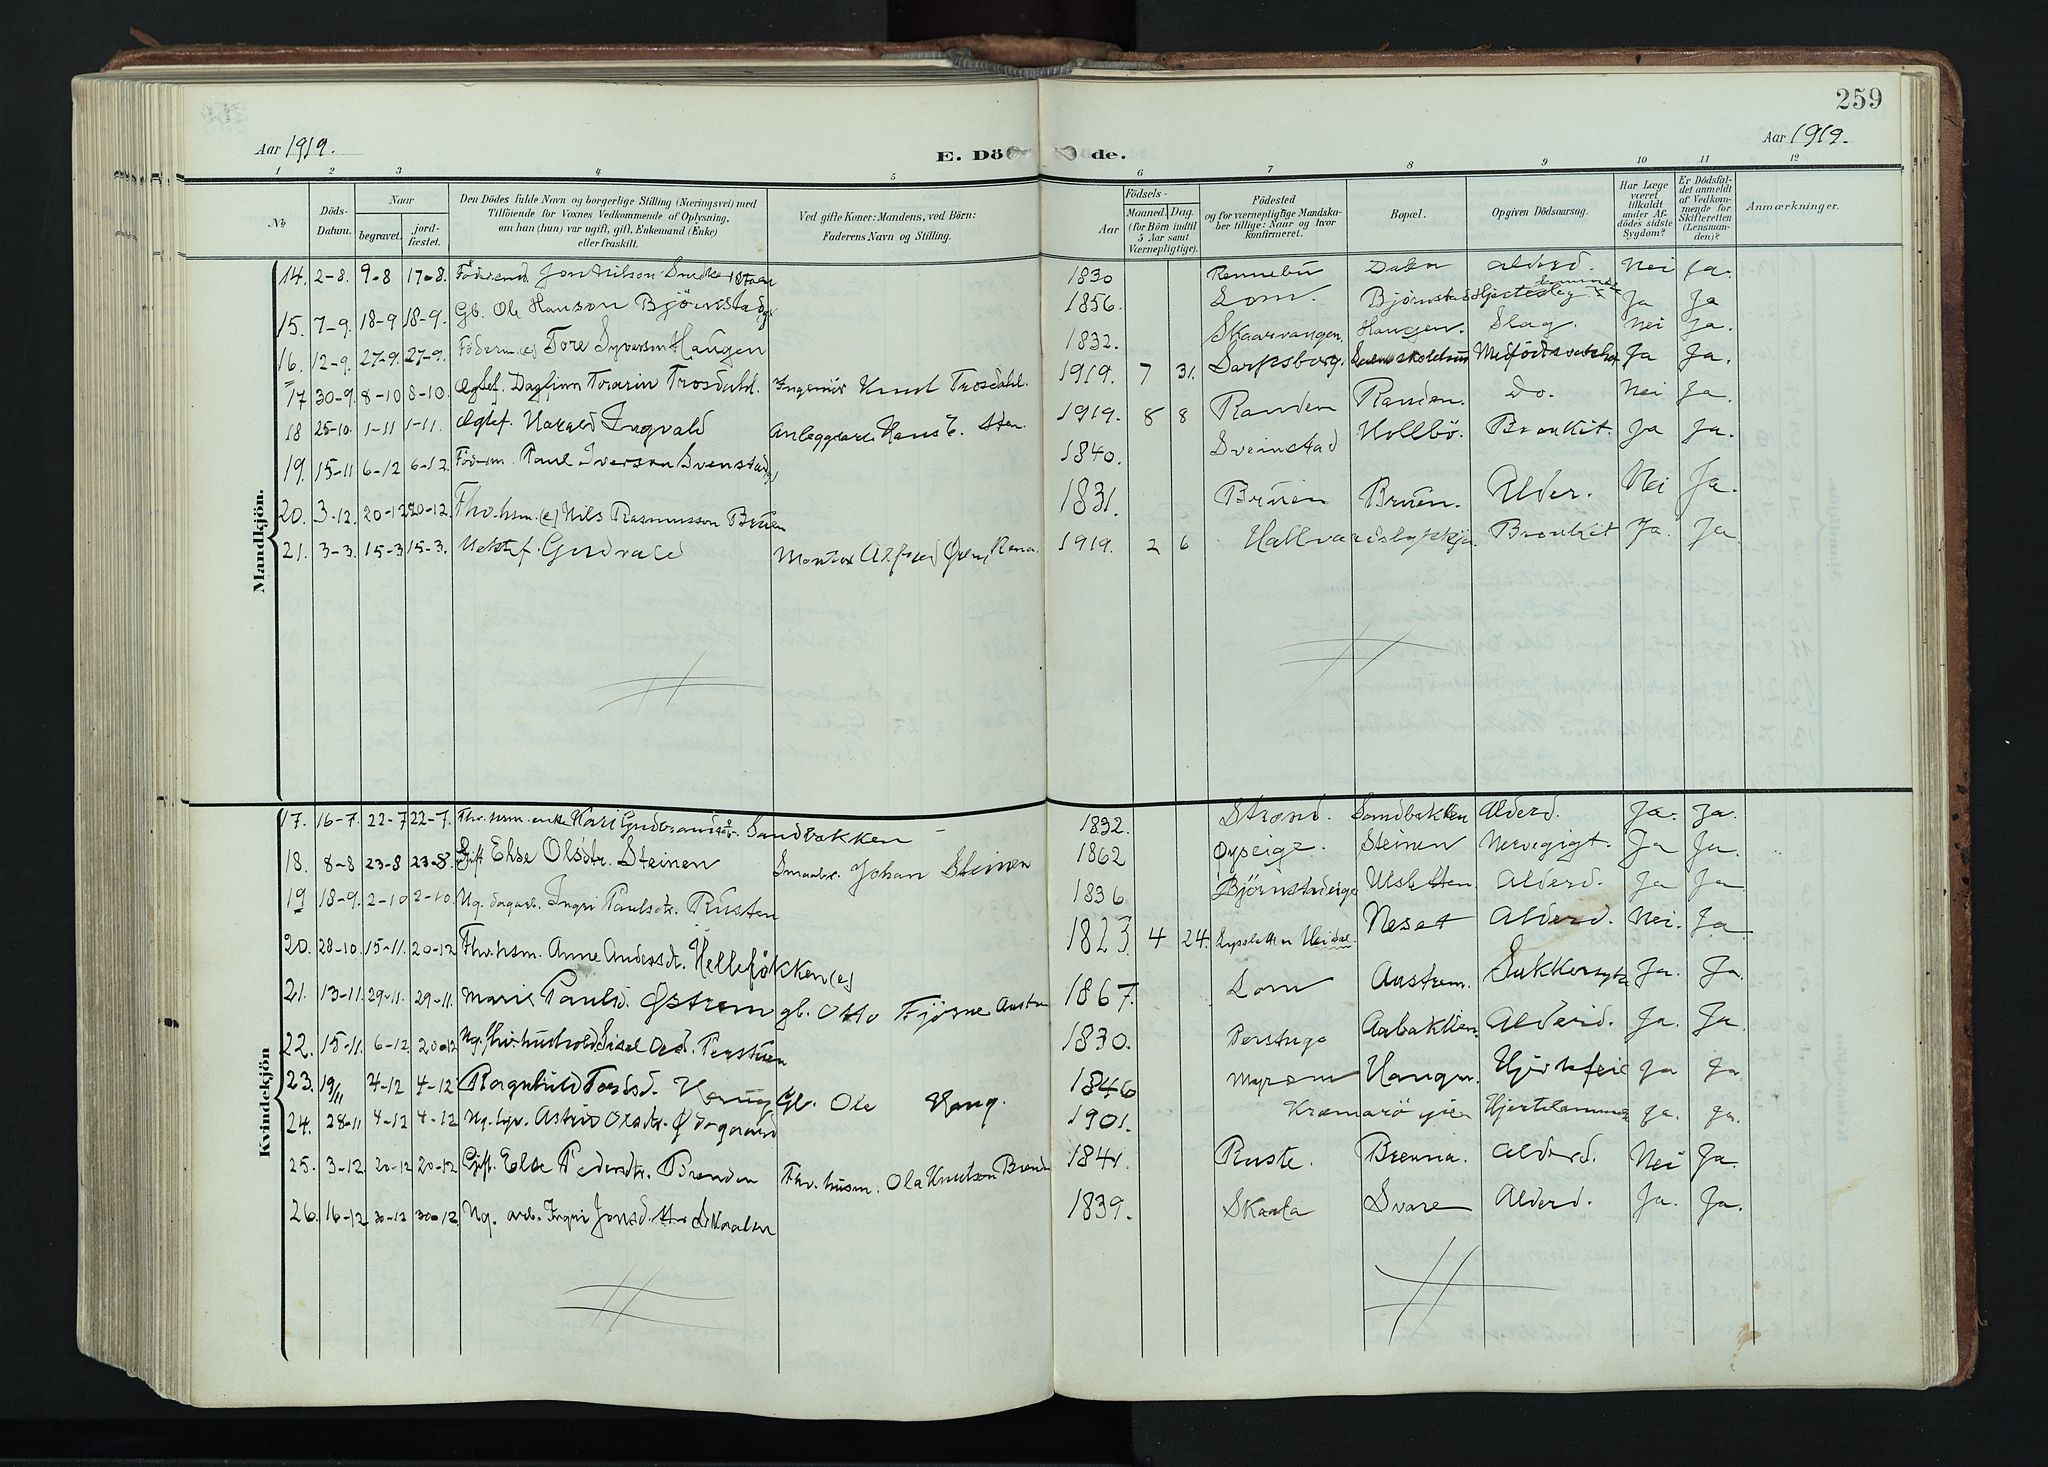 259
Aar 1919.
E. Dö de.
Aar 1919.
1 2 3 4 5 6 7 8 9 10 11 12
No
Döds-Datum.
Naar
begravet.
jord-fæstet.
Den Dödes fulde Navn og borgerlige Stilling (Næringsvei) med
Tilföiende for Voxnes Vedkommende af Oplysning,
om han (hun) var ugift, gift, Enkemand (Enke)
eller fraskilt.
Ved gifte Koner: Mandens, ved Börn:
Faderens Navn og Stilling.
Födsels-
Aar
Maaned. Dag.
(for Börn indtil
5 Aar samt
Værnepligtige).
Födested
og for værnepligtige Mandska-
ber tillige: Naar og hvor
konfirmeret.
Bopæl.
Opgiven Dödsaarsag.
Har Læge
været
tilkaldt
under Af-
dödes sidste
Sygdom?
Er Dödsfal-
det anmeldt
af Vedkom-
mende for
Skifteretten
(Lensman-
den)?
Anmærkninger.
Mandkjön.
14. 2-8. 9-8 17-8. Jon Nilson 1830 Rennebu Dalen Alderd. Nei Ja.
15. 7-9. 18-9 18-9. Gb. Ole Hanson Björnstad 1856. Lom. Bjørnstad Ja Ja
16. 12-9. 27-9. 27-9. Föderm. (e) Tore Syverson Haugen 1832. Skaarvangen. Haugen. Slag. Nei Ja.
17 30-9. 8-10 8-10. Ægtef. Dagfinn Torarin Trosdahl. Ingeniör Knut Trosdahl. 1919. 7 31. Sarpsborg. Ja Ja.
18 25-10. 1-11 1-11. Ægtef. Harald Ingvald Hans E. Sten. 1919. 8 8 Randen Randen. Do. Nei Ja.
19. 15-11 6-12 6-12. Paul Iverson Svenstad 1840. Sveinstad Hollbö. Bronkit. Ja Ja.
20. 3-12. 20-12 20-12. Fhv. hsm. (e) Nils Rasmusson Bruen 1831. Bruen Bruen. Alder. Nei Ja.
21. 3-3. 15-3 15-3. Gudvald Montør Alfred Øien, Rena. 1919. 2 6 Bronkit Ja. Ja.
Kvindekjön
17. 16-7. 22-7 22-7. Fhv. hsm. enke Kari Gudbrandsdr. Sandbakken 1832. Strand. Sandbakken Alderd. Ja. Ja.
18. 8-8 23-8 23-8. Gift Else Olsdtr. Steinen Smaabr. Johan Steinen 1862 Øyseige. Steinen Nervegigt. Ja Ja.
19 18-9. 2-10 2-10. Ug. Ingri Paulsdtr. Rusten 1836 Bjørnstadeige Ulsletten. Alderd. Ja Ja
20. 28-10. 15-11. 20-12 Fhv. hsm. Anne Andersdr. Helleløkken (e) 1823 4 24. Heidal. Neset Alderd. Nei. Ja
21. 13-11. 29-11. 29-11. Marie Paulsd. Østrem gb. Otto Fjörne 1867. Lom Austrem. Sukkersyke Ja. Ja.
22. 15-11. 6-12 20-12 Ug. 1830. Perstuge Aabakken. Alderd. Ja. Ja.
23. 19/11 4-12 4-12 Ragnhild Tordsd. Haug Gb. Ole Haug. 1846 Myrom Haugen. Ja Ja
24. 28-11 4-12 4-12 Ug. Astrid Olsdtr. Ødegaard 1901. Ja. Ja.
25. 3-12. 20-12 20-12 Gift. Else Pedersdtr. Brenden Fhv. husm. Ola Knutson 1841. Ruste. Brenna Alderd. Nei Ja.
26. 16-12 30-12 30-12 Ug. arb. Ingri Jonsd. 1839. Skaala Svare Alderd. Ja. Ja.